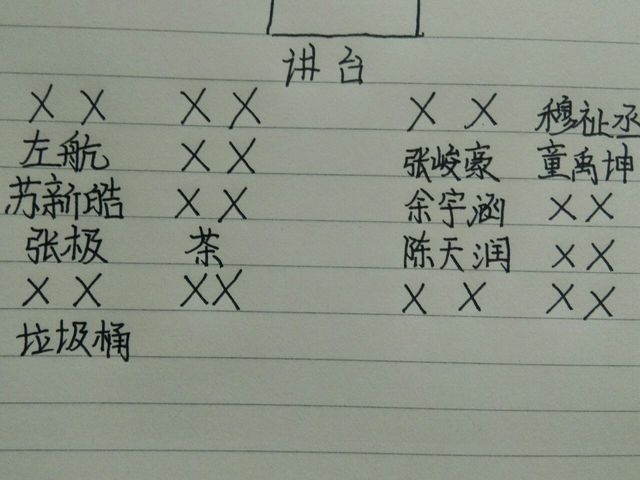 讲台
×× ×× ×× 穆祉丞
左航 ×× 张峻豪 童禹坤
苏新皓 ×× 余宇涵 ××
张极 茶 陈天润 ××
×× ×× ×× ××
垃圾桶